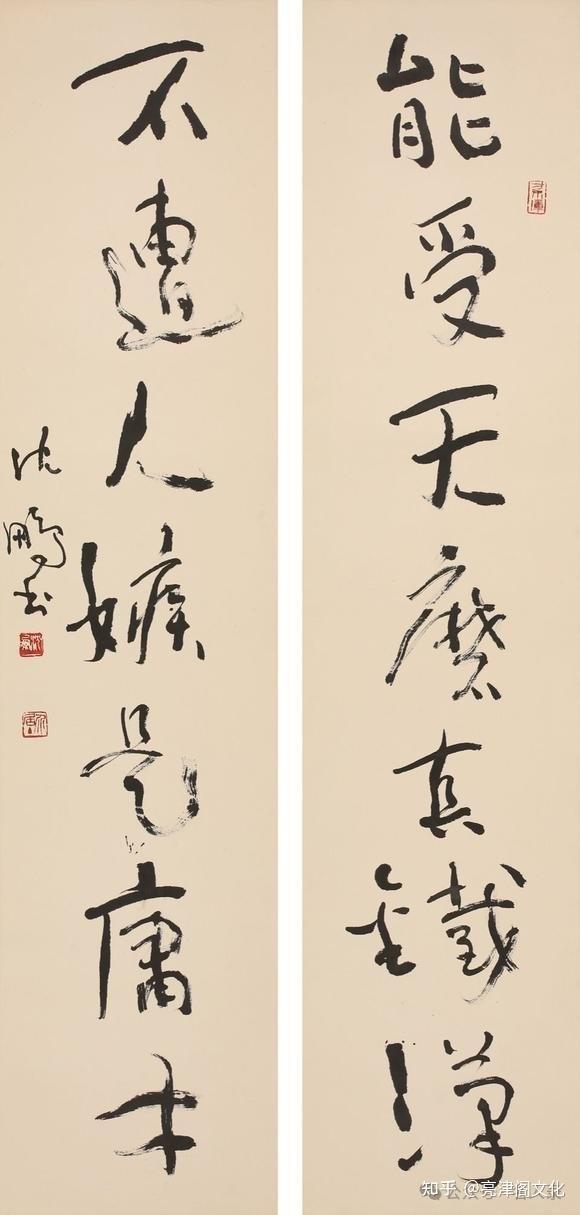 能受天磨真鐵漢
不遭人嫉是庸才
沈鵬书
知乎 @亮津阁文化